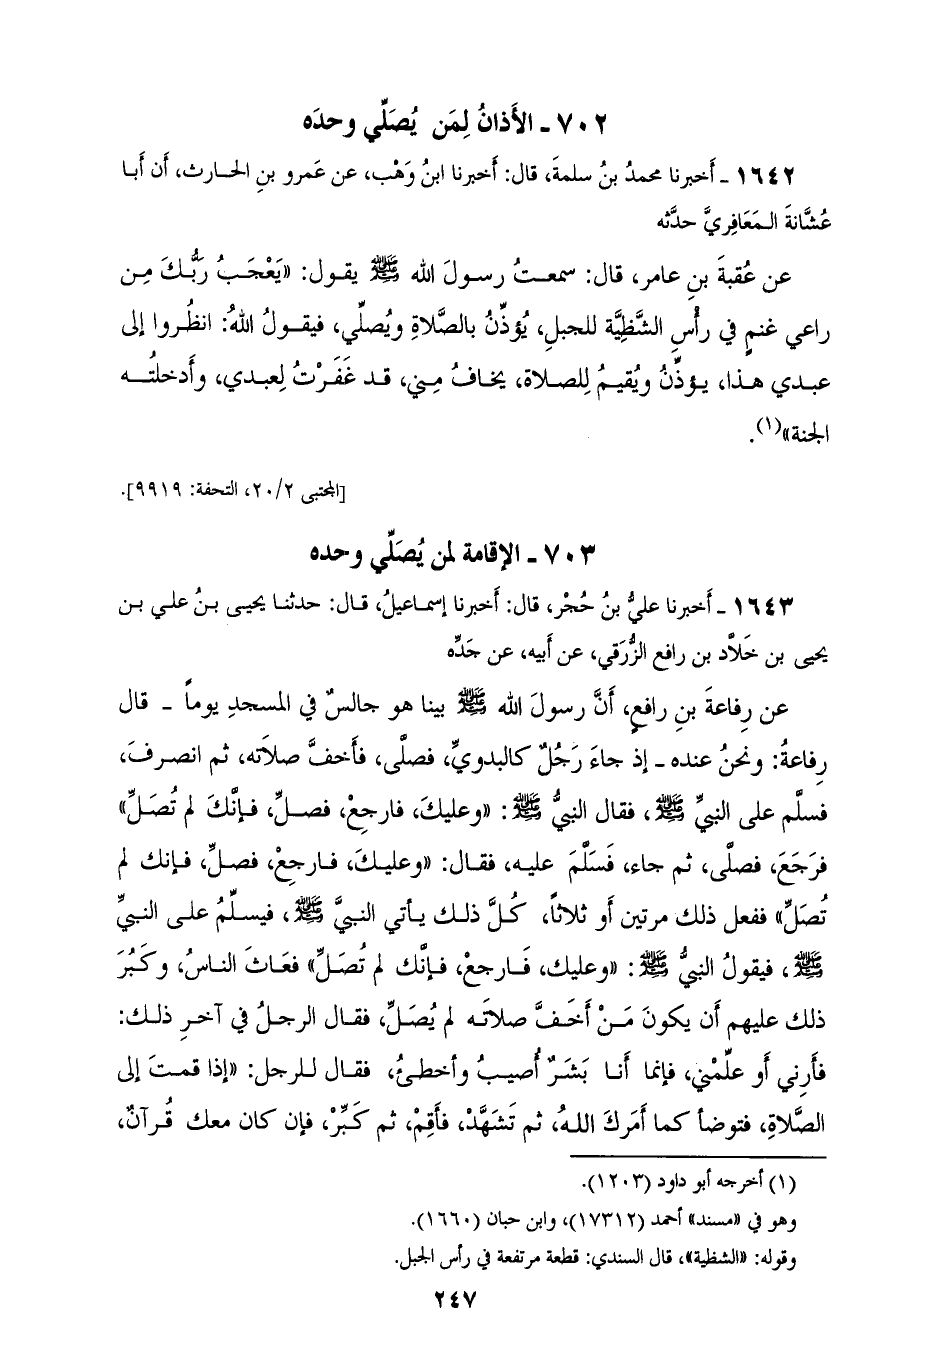 ٧٠٢ ـ الأَذانُ لِمَن يُصَلِّي وحدَه
١٦٤٢ ـ أخبرنا محمدُ بنُ سلمةَ، قال: أخبرنا ابنُ وَهْب، عن عَمرو بنِ الحارث، أن أبا
عُشَّانةَ المَعَافِريَّ حدَّثه
عن عُقبةَ بنِ عامر، قال: سمعتُ رسولَ الله ﷺ يقول: «يَعْجَبُ رَبُّكَ مِن
راعي غنمٍ في رأْسِ الشَّظِيَّة للجبلِ، يُؤذِّنُ بالصَّلاةِ ويُصلِّي، فيقولُ اللهُ: انظُروا إلى
عبدي هذا، يؤذِّنُ ويُقيمُ لِلصلاة، يخافُ مِني، قد غَفَرْتُ لِعبدي، وأَدخلتُه
الجنة»(١).
[المجتبى ٢٠/٢، التحفة: ٩٩١٩].
٧٠٣ ـ الإقامة لمن يُصَلِّي وحده
١٦٤٣ ـ أخبرنا عليُّ بنُ حُجْر، قال: أخبرنا إسماعيلُ، قال: حدثنا يحيى بنُ علي بن
يحيى بن خَلاَّد بن رافع الزُّرَقي، عن أبيه، عن جَدِّه
عن رِفاعةَ بنِ رافعٍ، أنَّ رسولَ الله ﷺ بينا هو جالسٌ في المسجدِ يوماً ـ قال
رِفاعةُ: ونحنُ عنده ـ إذ جاءَ رَجُلٌ كالبدويِّ، فصلَّى، فأخفَّ صلاتَه، ثم انصرفَ،
فسلَّم على النبيِّ ﷺ، فقال النبيُّ ﷺ: «وعليكَ، فارجِعْ، فصلِّ، فإنَّكَ لم تُصَلِّ»
فرَجَعَ، فصلَّى، ثم جاء، فَسَلَّمَ عليه، فقال: «وعليكَ، فارجِعْ، فصلِّ، فإنك لم
تُصَلِّ» ففعل ذلك مرتين أو ثلاثاً، كُلَّ ذلك يأتي النبيَّ ﷺ، فيسلِّمُ على النبيِّ
ﷺ، فيقولُ النبيُّ ﷺ: «وعليك، فَارجعْ، فإنَّك لم تُصَلِّ» فعَاثَ الناسُ، وكَبُرَ
ذلك عليهم أن يكونَ مَنْ أخَفَّ صلاتَه لم يُصَلِّ، فقال الرجلُ في آخرِ ذلك:
فأرِني أو علِّمْني، فإنما أنا بَشَرٌ أُصيبُ وأخطئُ، فقال للرجل: «إذا قمتَ إلى
الصَّلاةِ، فتوضأ كما أمَركَ اللهُ، ثم تَشَهَّدْ، فأقِمْ، ثم كَبِّرْ، فإن كان معك قُرآنٌ،
(١) أخرجه أبو داود (١٢٠٣).
وهو في «مسند» أحمد (١٧٣١٢)، وابن حبان (١٦٦٠).
وقوله: «الشظية»، قال السندي: قطعة مرتفعة في رأس الجبل.
٢٤٧